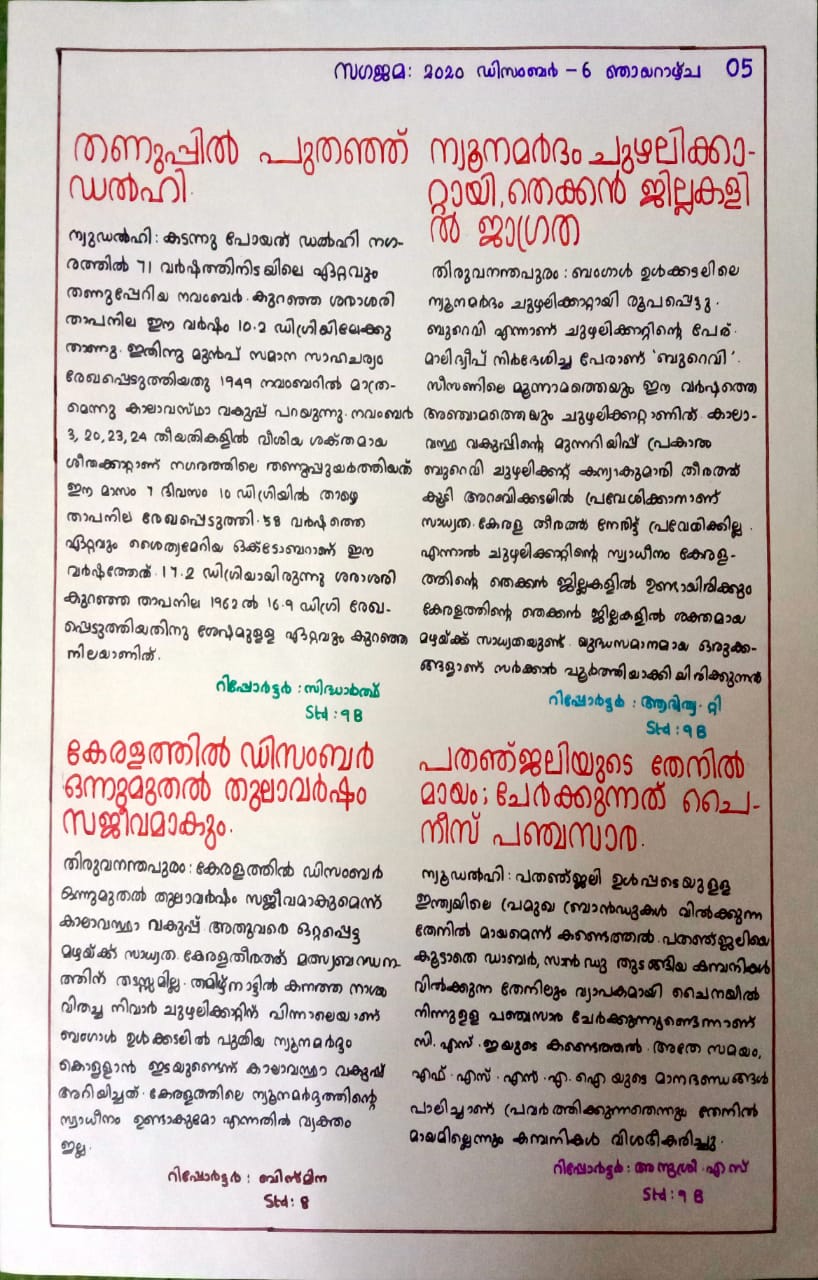 സഗജമ: ൨൦൨൦ ഡിസംബർ - 6 ഞായറാഴ്ച 05
തണുപ്പിൽ പുതഞ്ഞ്
ഡൽഹി.
ന്യുഡൽഹി: കടന്നു പോയത് ഡൽഹി നഗ-
രത്തിൽ 71 വർഷത്തിനിടയിലെ ഏറ്റവും
തണുപ്പേറിയ നവംബർ. കുറഞ്ഞ ശരാശരി
താപനില ഈ വർഷം 10.2 ഡിഗ്രിയിലേക്കു
താണു. ഇതിനു മുൻപ് സമാന സാഹചര്യം
രേഖപ്പെടുത്തിയതു 1949 നവംബറിൽ മാത്ര-
മെന്നു കാലാവസ്ഥാ വകുപ്പ് പറയുന്നു. നവംബർ
3, 20, 23, 24 തീയതികളിൽ വീശിയ ശക്തമായ
ശീതക്കാറ്റാണ് നഗരത്തിലെ തണുപ്പുയർത്തിയത്
ഈ മാസം 7 ദിവസം 10 ഡിഗ്രിയിൽ താഴെ
താപനില രേഖപ്പെടുത്തി. 58 വർഷത്തെ
ഏറ്റവും ശൈത്യമേറിയ ഒക്ടോബറാണ് ഈ
വർഷത്തേത്. 17.2 ഡിഗ്രിയായിരുന്നു ശരാശരി
കുറഞ്ഞ താപനില 1962 ൽ 16.9 ഡിഗ്രി രേഖ-
പ്പെടുത്തിയതിനു ശേഷമുള്ള ഏറ്റവും കുറഞ്ഞ
നിലയാണിത്.
റിപ്പോർട്ടർ : സിദ്ധാർത്ഥ്
Std : 9 B
ന്യൂനമർദം ചുഴലിക്കാ-
റ്റായി, തെക്കൻ ജില്ലകളി
ൽ ജാഗ്രത
തിരുവനന്തപുരം : ബംഗാൾ ഉൾക്കടലിലെ
ന്യൂനമർദം ചുഴലിക്കാറ്റായി രൂപപ്പെട്ടു.
ബുറെവി എന്നാണ് ചുഴലിക്കാറ്റിന്റെ പേര്.
മാലിദ്വീപ് നിർദേശിച്ച പേരാണ് 'ബുറെവി'.
സീസണിലെ മൂന്നാമത്തെയും ഈ വർഷത്തെ
അഞ്ചാമത്തെയും ചുഴലിക്കാറ്റാണിത്. കാലാ-
വസ്ഥ വകുപ്പിന്റെ മുന്നറിയിപ്പ് പ്രകാരം
ബുറെവി ചുഴലിക്കാറ്റ് കന്യാകുമാരി തീരത്ത്
കൂടി അറബിക്കടലിൽ പ്രവേശിക്കാനാണ്
സാധ്യത. കേരള തീരത്ത് നേരിട്ട് പ്രവേശിക്കില്ല.
എന്നാൽ ചുഴലിക്കാറ്റിന്റെ സ്വാധീനം കേരള-
ത്തിന്റെ തെക്കൻ ജില്ലകളിൽ ഉണ്ടായിരിക്കും
കേരളത്തിന്റെ തെക്കൻ ജില്ലകളിൽ ശക്തമായ
മഴയ്ക്ക് സാധ്യതയുണ്ട്. യുദ്ധസമാനമായ ഒരുക്ക-
ങ്ങളാണ് സർക്കാർ പൂർത്തിയാക്കിയിരിക്കുന്നത്
റിപ്പോർട്ടർ : ആദിത്യ. റ്റി
Std : 9 B
കേരളത്തിൽ ഡിസംബർ
ഒന്നുമുതൽ തുലാവർഷം
സജീവമാകും.
തിരുവനന്തപുരം : കേരളത്തിൽ ഡിസംബർ
ഒന്നുമുതൽ തുലാവർഷം സജീവമാകുമെന്ന്
കാലാവസ്ഥാ വകുപ്പ്. അതുവരെ ഒറ്റപ്പെട്ട
മഴയ്ക്ക് സാധ്യത. കേരളതീരത്ത് മത്സ്യബന്ധന-
ത്തിന് തടസ്സമില്ല. തമിഴ്നാട്ടിൽ കനത്ത നാശം
വിതച്ച നിവാർ ചുഴലിക്കാറ്റിന് പിന്നാലെയാണ്
ബംഗാൾ ഉൾക്കടലിൽ പുതിയ ന്യൂനമർദ്ദം
കൊള്ളാൻ ഇടയുണ്ടെന്ന് കാലാവസ്ഥാ വകുപ്പ്
അറിയിച്ചത്. കേരളത്തിലെ ന്യൂനമർദ്ദത്തിന്റെ
സ്വാധീനം ഉണ്ടാകുമോ എന്നതിൽ വ്യക്തം
ഇല്ല.
റിപ്പോർട്ടർ : ബിസ്മിന
Std : 8
പതഞ്ജലിയുടെ തേനിൽ
മായം ; ചേർക്കുന്നത് ചൈ-
നീസ് പഞ്ചസാര.
ന്യൂഡൽഹി : പതഞ്ജലി ഉൾപ്പടെയുള്ള
ഇന്ത്യയിലെ പ്രമുഖ ബ്രാൻഡുകൾ വിൽക്കുന്ന
തേനിൽ മായമെന്ന് കണ്ടെത്തൽ. പതഞ്ജലിയെ
കൂടാതെ ഡാബർ, സൻഡു തുടങ്ങിയ കമ്പനികൾ
വിൽക്കുന്ന തേനിലും വ്യാപകമായി ചൈനയിൽ
നിന്നുള്ള പഞ്ചസാര ചേർക്കുന്നുണ്ടെന്നാണ്
സി.എസ്.ഇയുടെ കണ്ടെത്തൽ. അതേ സമയം,
എഫ്.എസ്.എൻ.എ.ഐ യുടെ മാനദണ്ഡങ്ങൾ
പാലിച്ചാണ് പ്രവർത്തിക്കുന്നതെന്നും തേനിൽ
മായമില്ലെന്നും കമ്പനികൾ വിശദീകരിച്ചു.
റിപ്പോർട്ടർ : അനുശ്രീ. എസ്
Std : 9 B